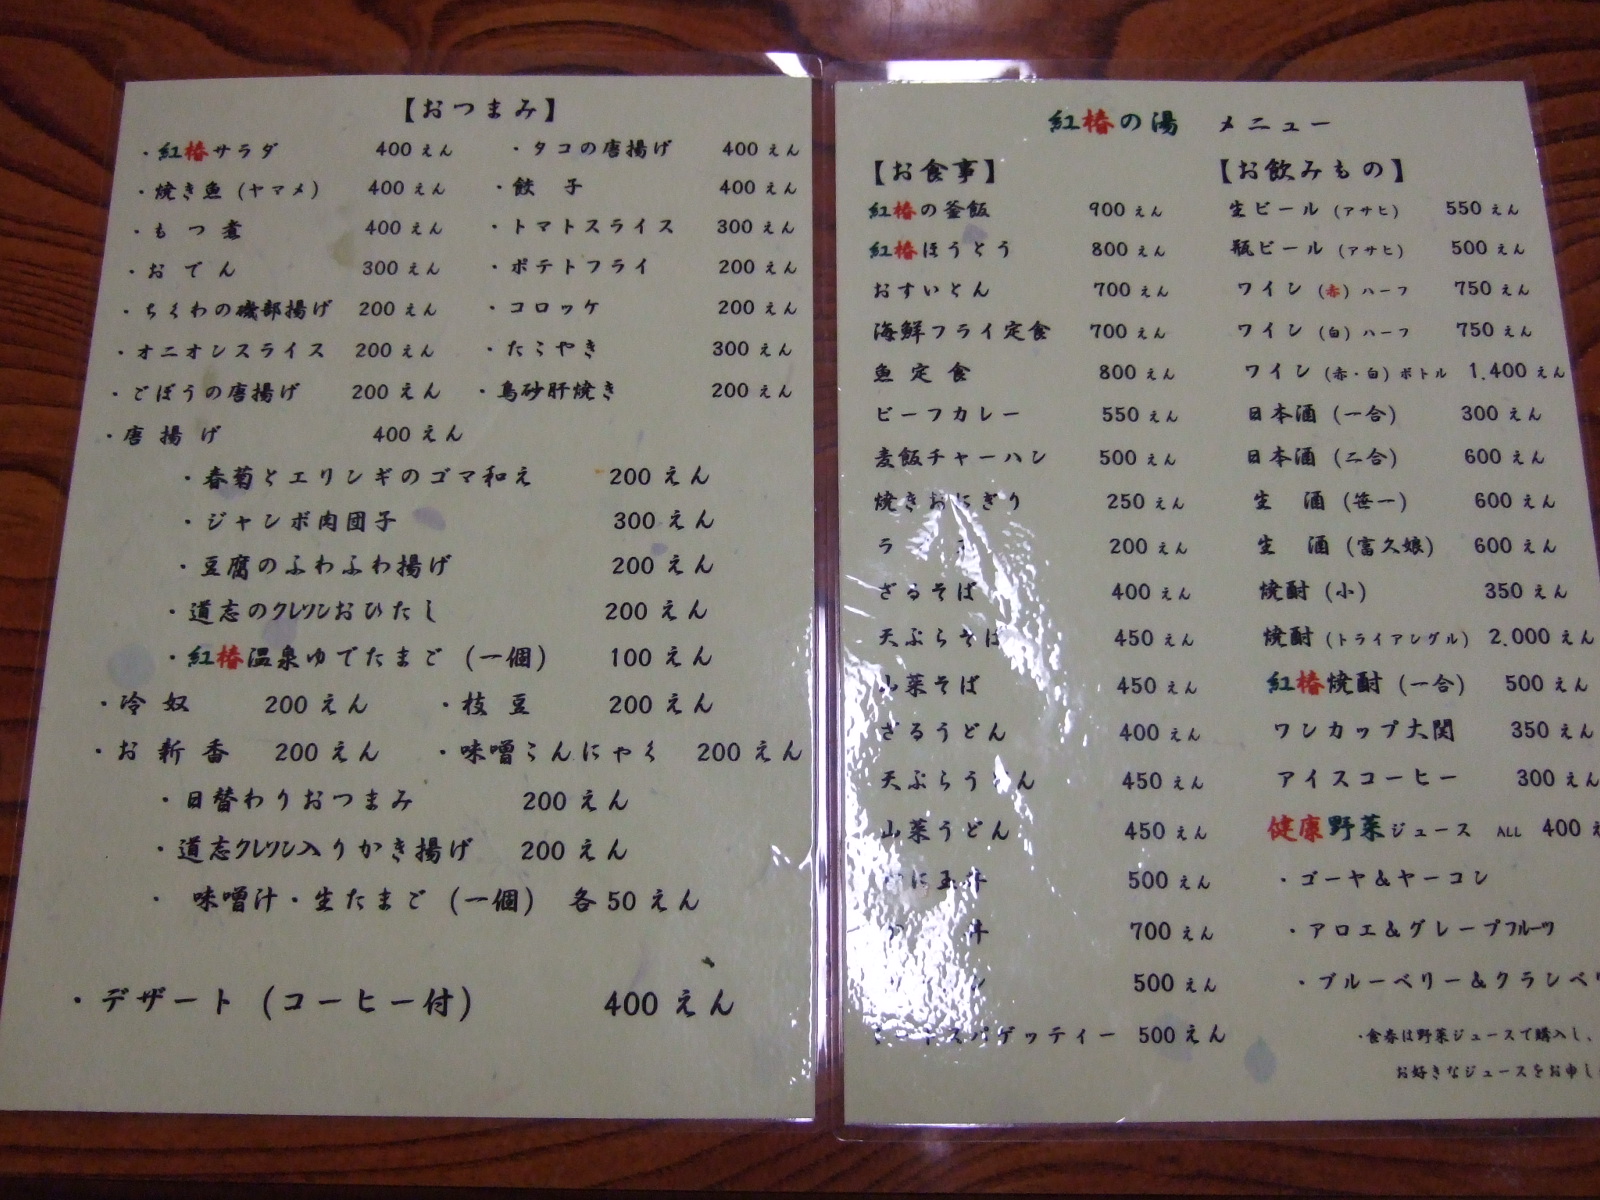 【おつまみ】
・紅椿サラダ 400えん ・タコの唐揚げ 400えん
・焼き魚(ヤマメ) 400えん ・餃子 400えん
・もつ煮 400えん ・トマトスライス 300えん
・おでん 300えん ・ポテトフライ 200えん
・ちくわの磯部揚げ 200えん ・コロッケ 200えん
・オニオンスライス 200えん ・たこやき 300えん
・ごぼうの唐揚げ 200えん ・鳥砂肝焼き 200えん
・唐揚げ 400えん
・春菊とエリンギのゴマ和え 200えん
・ジャンボ肉団子 300えん
・豆腐のふわふわ揚げ 200えん
・道志のクレソンおひたし 200えん
・紅椿温泉ゆでたまご(一個) 100えん
・冷奴 200えん ・枝豆 200えん
・お新香 200えん ・味噌こんにゃく 200えん
・日替わりおつまみ 200えん
・道志クレソン入りかき揚げ 200えん
・味噌汁・生たまご(一個) 各50えん
・デザート(コーヒー付) 400えん
紅椿の湯 メニュー
【お食事】
紅椿の釜飯 900えん
紅椿ほうとう 800えん
おすいとん 700えん
海鮮フライ定食 700えん
魚定食 800えん
ビーフカレー 550えん
麦飯チャーハン 500えん
焼きおにぎり 250えん
ラ 200えん
ざるそば 400えん
天ぷらそば 450えん
山菜そば 450えん
ざるうどん 400えん
天ぷらうどん 450えん
山菜うどん 450えん
に玉丼 500えん
丼 700えん
500えん
スパゲッティー 500えん
【お飲みもの】
生ビール(アサヒ) 550えん
瓶ビール(アサヒ) 500えん
ワイン(赤)ハーフ 750えん
ワイン(白)ハーフ 750えん
ワイン(赤・白)ボトル 1.400えん
日本酒(一合) 300えん
日本酒(二合) 600えん
生酒(笹一) 600えん
生酒(富久娘) 600えん
焼酎(小) 350えん
焼酎(トライアングル) 2.000えん
紅椿焼酎(一合) 500えん
ワンカップ大関 350えん
アイスコーヒー 300えん
健康野菜ジュース ALL 400え
・ゴーヤ&ヤーコン
・アロエ&グレープフルーツ
・ブルーベリー&クランベリ
・食券は野菜ジュースで購入し、
お好きなジュースをお申し